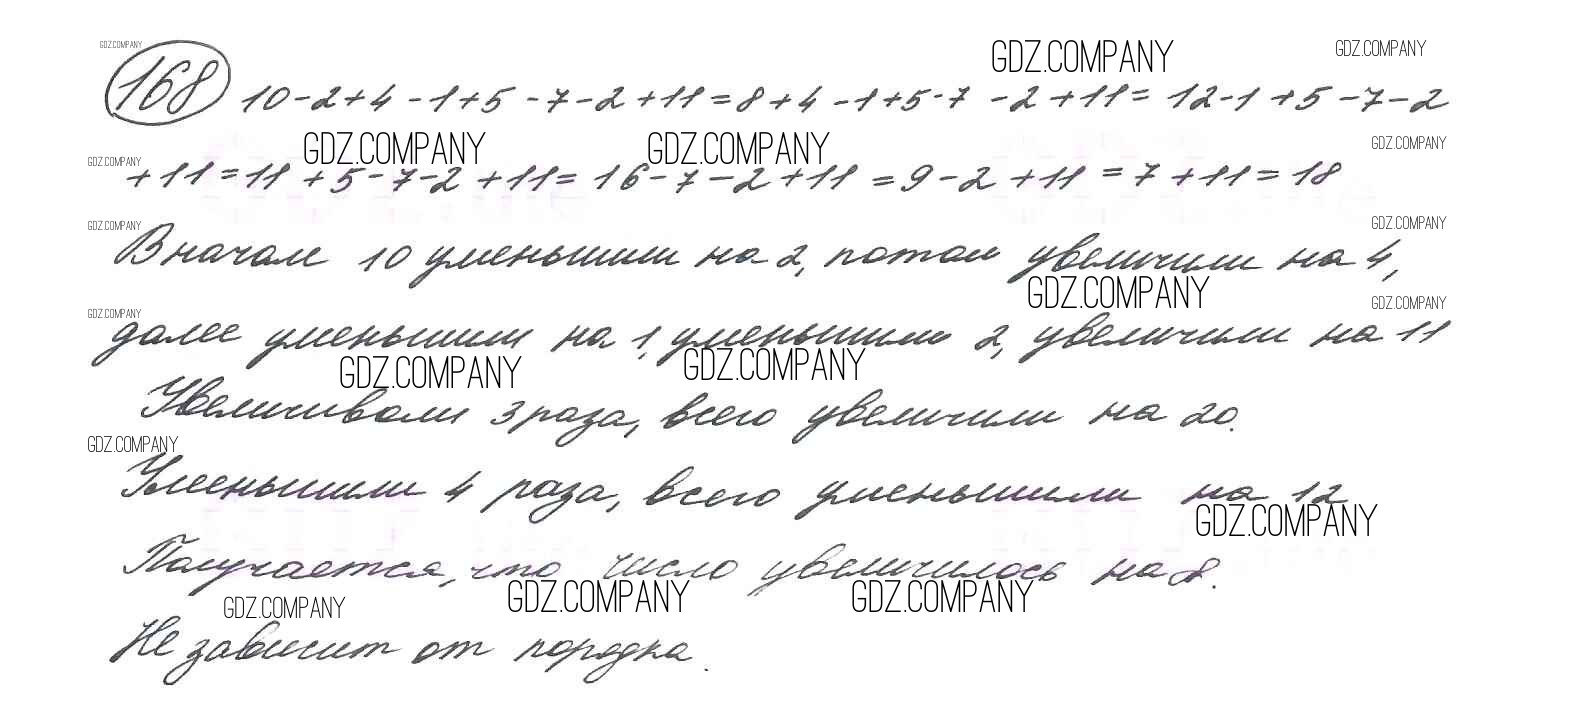 GDZ.COMPANY
GDZ.COMPANY GDZ.COMPANY
168 10-2+4-1+5-7-2+11=8+4-1+5-7-2+11=12-1+5-7-2
GDZ.COMPANY GDZ.COMPANY GDZ.COMPANY
GDZ.COMPANY
+11=11+5-7-2+11=16-7-2+11=9-2+11=7+11=18
GDZ.COMPANY GDZ.COMPANY
Вначале 10 уменьшили на 2, потом увеличили на 4,
GDZ.COMPANY
GDZ.COMPANY GDZ.COMPANY
далее уменьшили на 1, уменьшили 2, увеличили на 11
GDZ.COMPANY GDZ.COMPANY
Увеличивали 3 раза, всего увеличили на 20.
GDZ.COMPANY
Уменьшили 4 раза, всего уменьшили на 12
GDZ.COMPANY
Получается, что число увеличилось на 8.
GDZ.COMPANY GDZ.COMPANY GDZ.COMPANY
Не зависит от порядка.